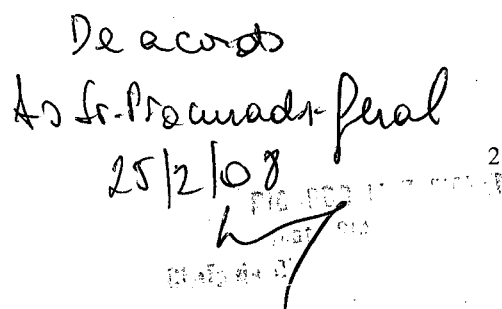 De acordo
Ao Sr. Procurador-Geral
25/2/08
2